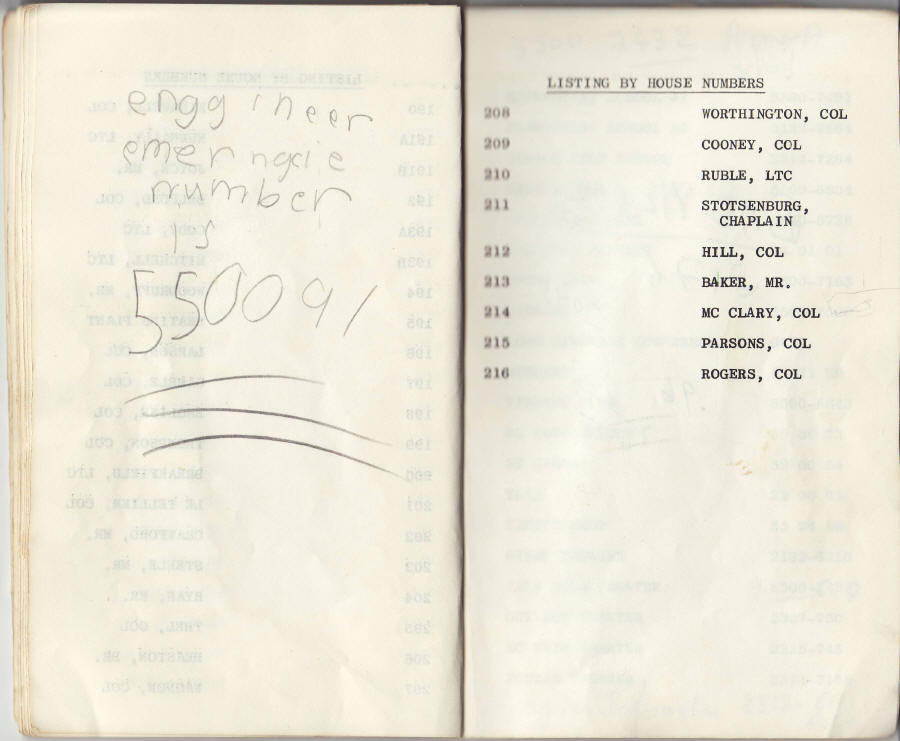 engg ineer
emer ngcie
number
is
550091
LISTING BY HOUSE NUMBERS
208 WORTHINGTON, COL
209 COONEY, COL
210 RUBLE, LTC
211 STOTSENBURG,
CHAPLAIN
212 HILL, COL
213 BAKER, MR.
214 MC CLARY, COL
215 PARSONS, COL
216 ROGERS, COL